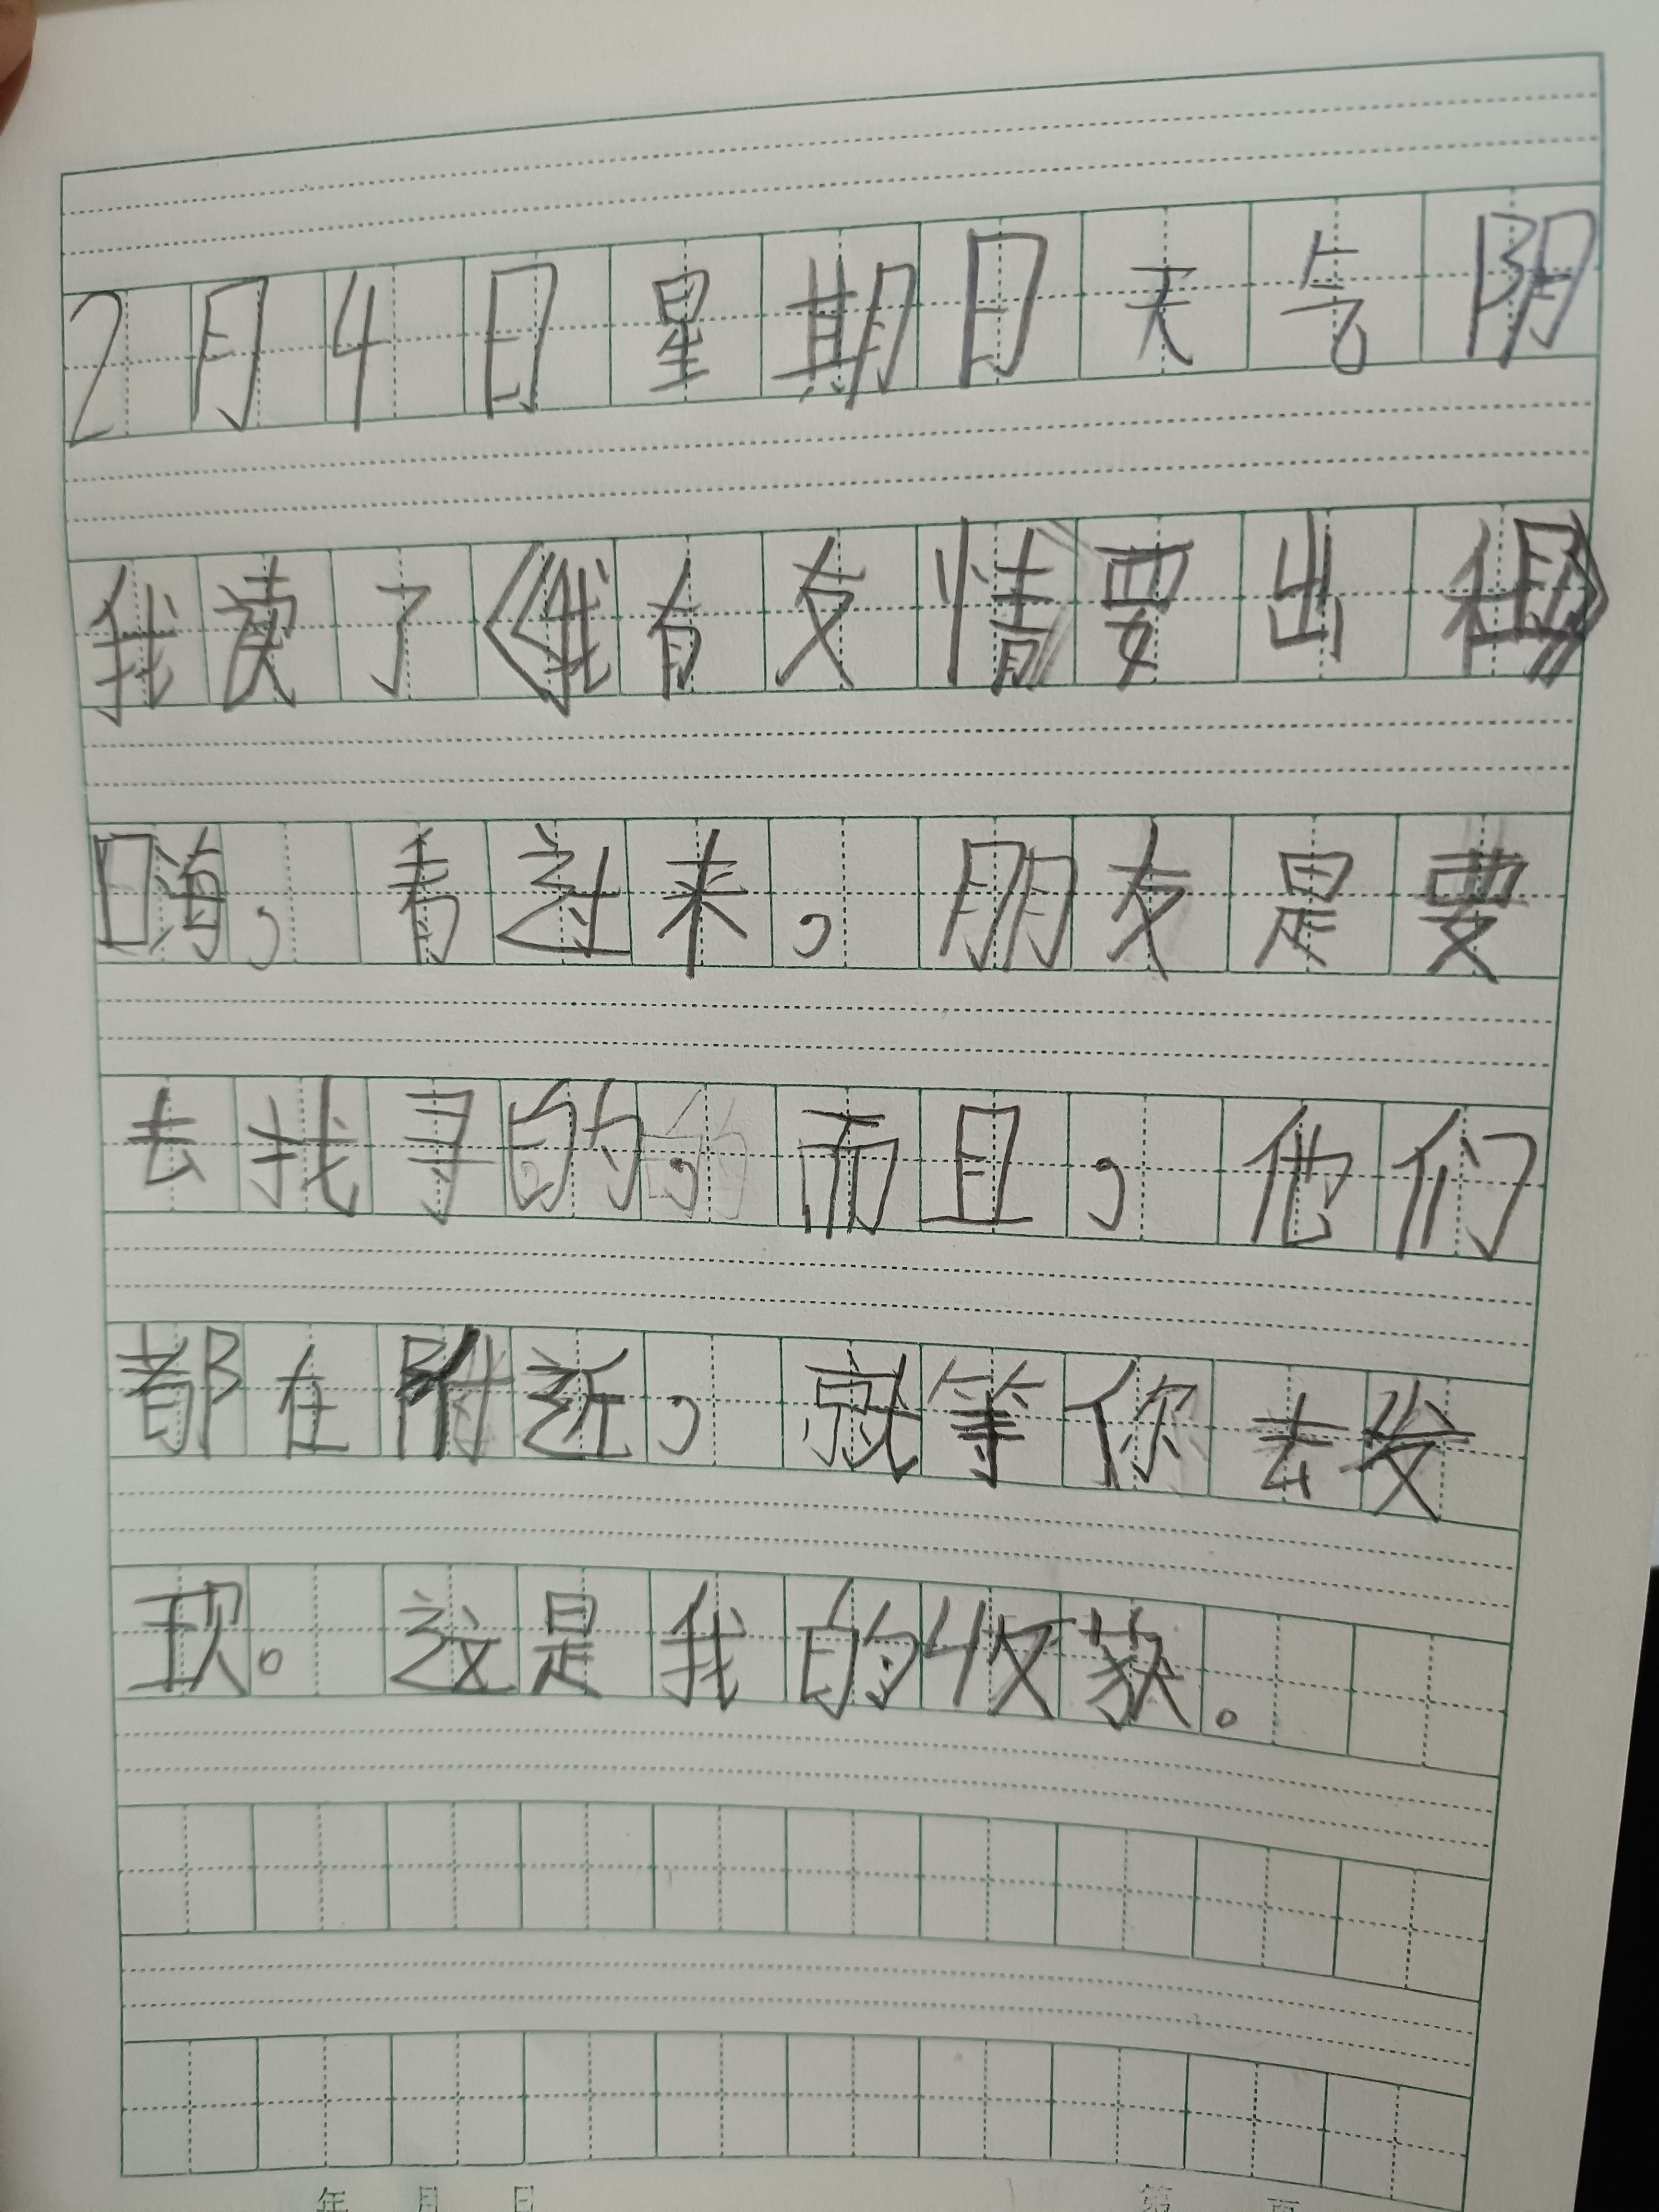 2月4日星期日天气阴
我读了《我有友情要出租》
嗨，看过来，朋友是要
去找寻的，而且，他们
都在附近，就等你去发
现。这是我的收获。
年 月 日 第 页